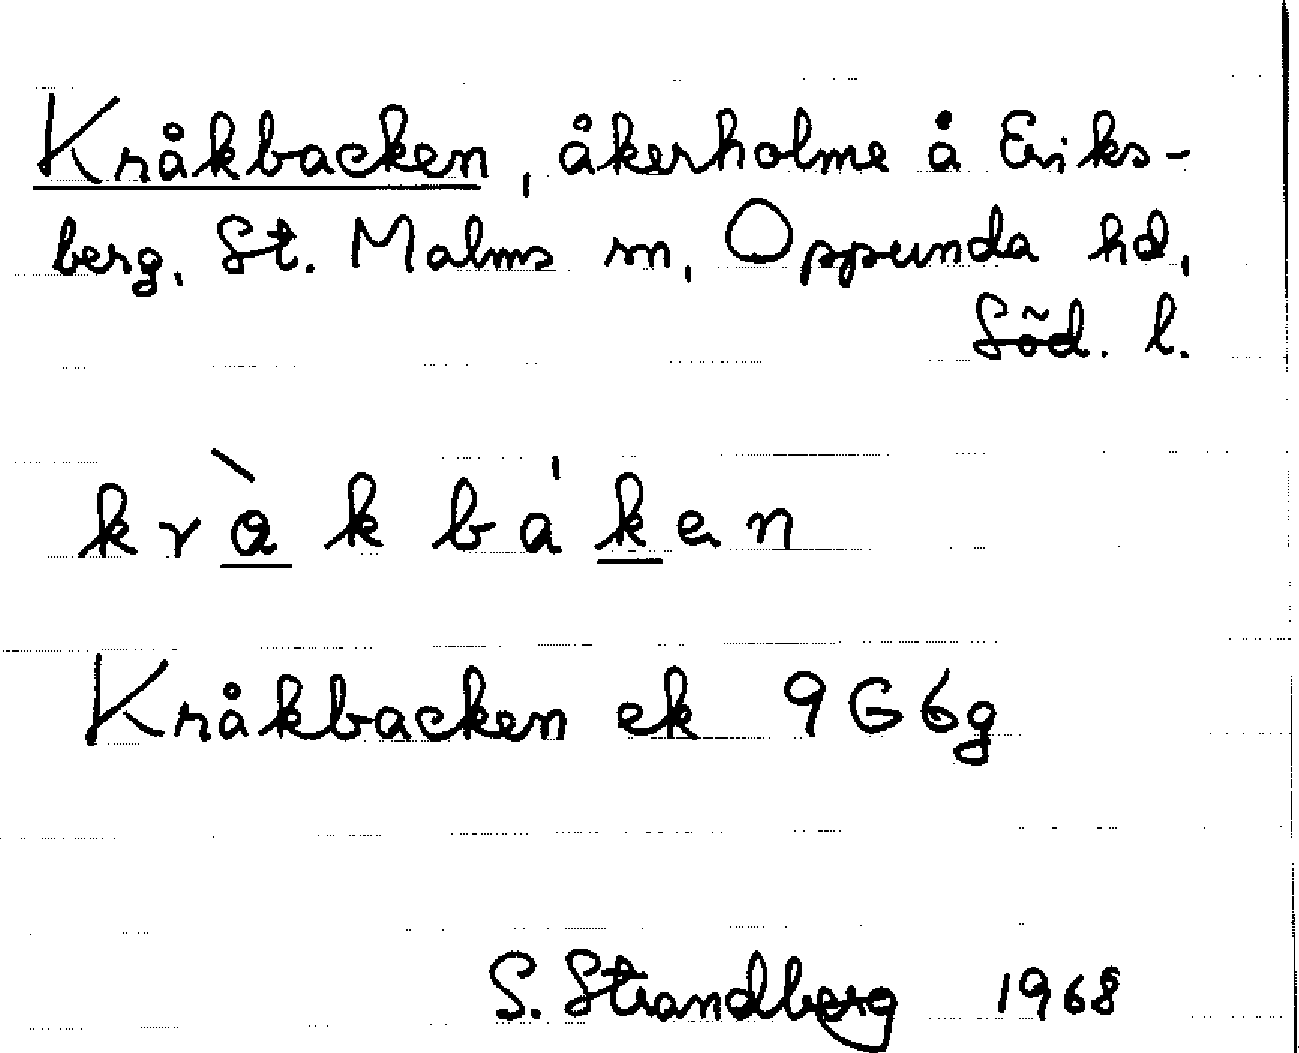 Kråkbacken, åkerholme å Eriks-
berg, St. Malms sn, Oppunda hd,
Söd. l.
kràk báken
Kråkbacken ek 9G6g
S. Strandberg 1968